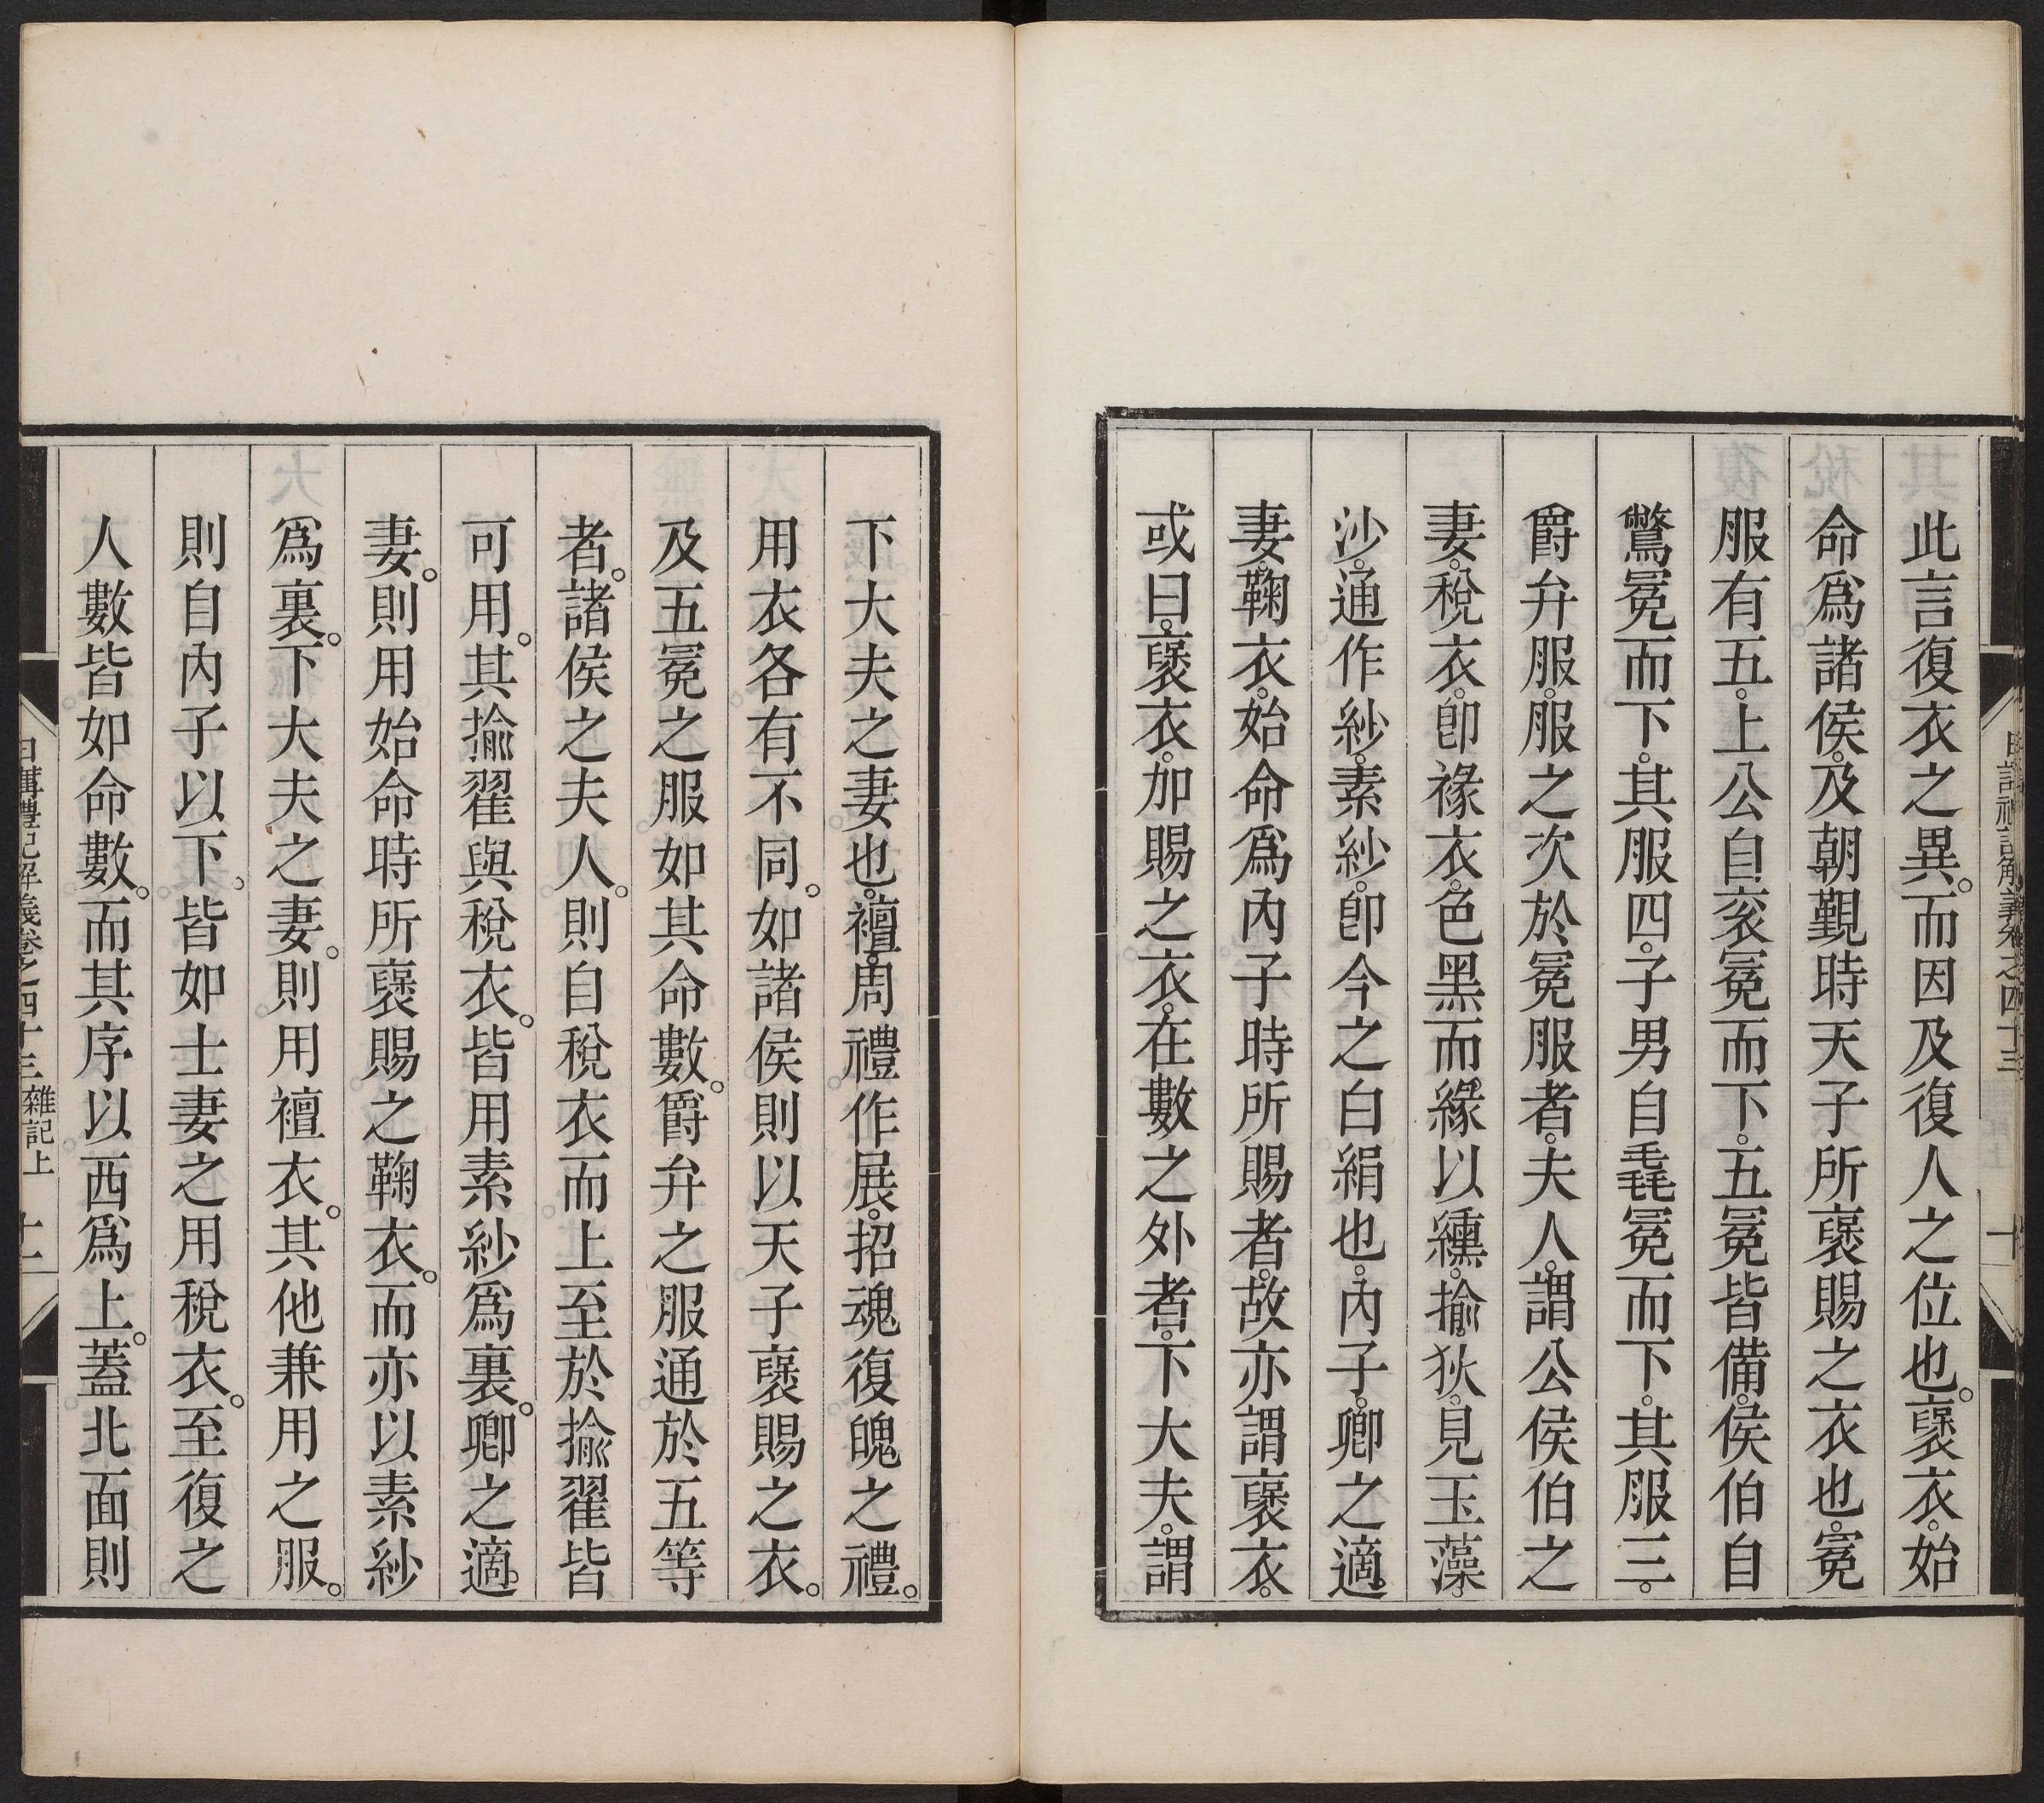 此言復衣之異。而因及復人之位也。褒衣。始
命爲諸侯。及朝覲時天子所褒賜之衣也。冕
服有五。上公自衮冕而下。五冕皆備。侯伯自
鷩冕而下。其服四。子男自毳冕而下。其服三。
爵弁服。服之次於冕服者。夫人。謂公侯伯之
妻。稅衣。卽褖衣。色黑而緣以纁。揄。狄。見玉藻。
沙。通作紗。素紗。卽今之白絹也。內子。卿之適
妻。鞠衣。始命爲內子時所賜者。故亦謂褒衣。
或曰。褒衣。加賜之衣。在數之外者。下大夫。謂
下大夫之妻也。襢。周禮作展。招魂復魄之禮。
用衣各有不同。如諸侯則以天子褒賜之衣。
及五冕之服。如其命數。爵弁之服通於五等
者。諸侯之夫人。則自稅衣而上至於揄翟皆
可用。其揄翟與稅衣。皆用素紗爲裏。卿之適
妻。則用始命時所褒賜之鞠衣。而亦以素紗
爲裏。下大夫之妻。則用襢衣。其他兼用之服。
則自內子以下。皆如士妻之用稅衣。至復之
人數皆如命數。而其序以西爲上。蓋北面則
日講禮記解義卷之四十三 雜記上 十一